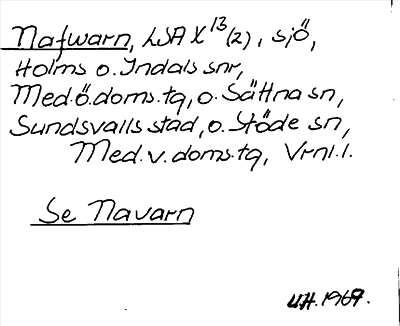 Nafwarn, LSA X 13 (2), sjö,
Holms o. Indals snr,
Med.ö.doms.tg, o. Sättna sn,
Sundsvalls stad, o. Stöde sn,
Med.v.doms.tg, Vrnl.l.
Se Navarn
UH. 1969.